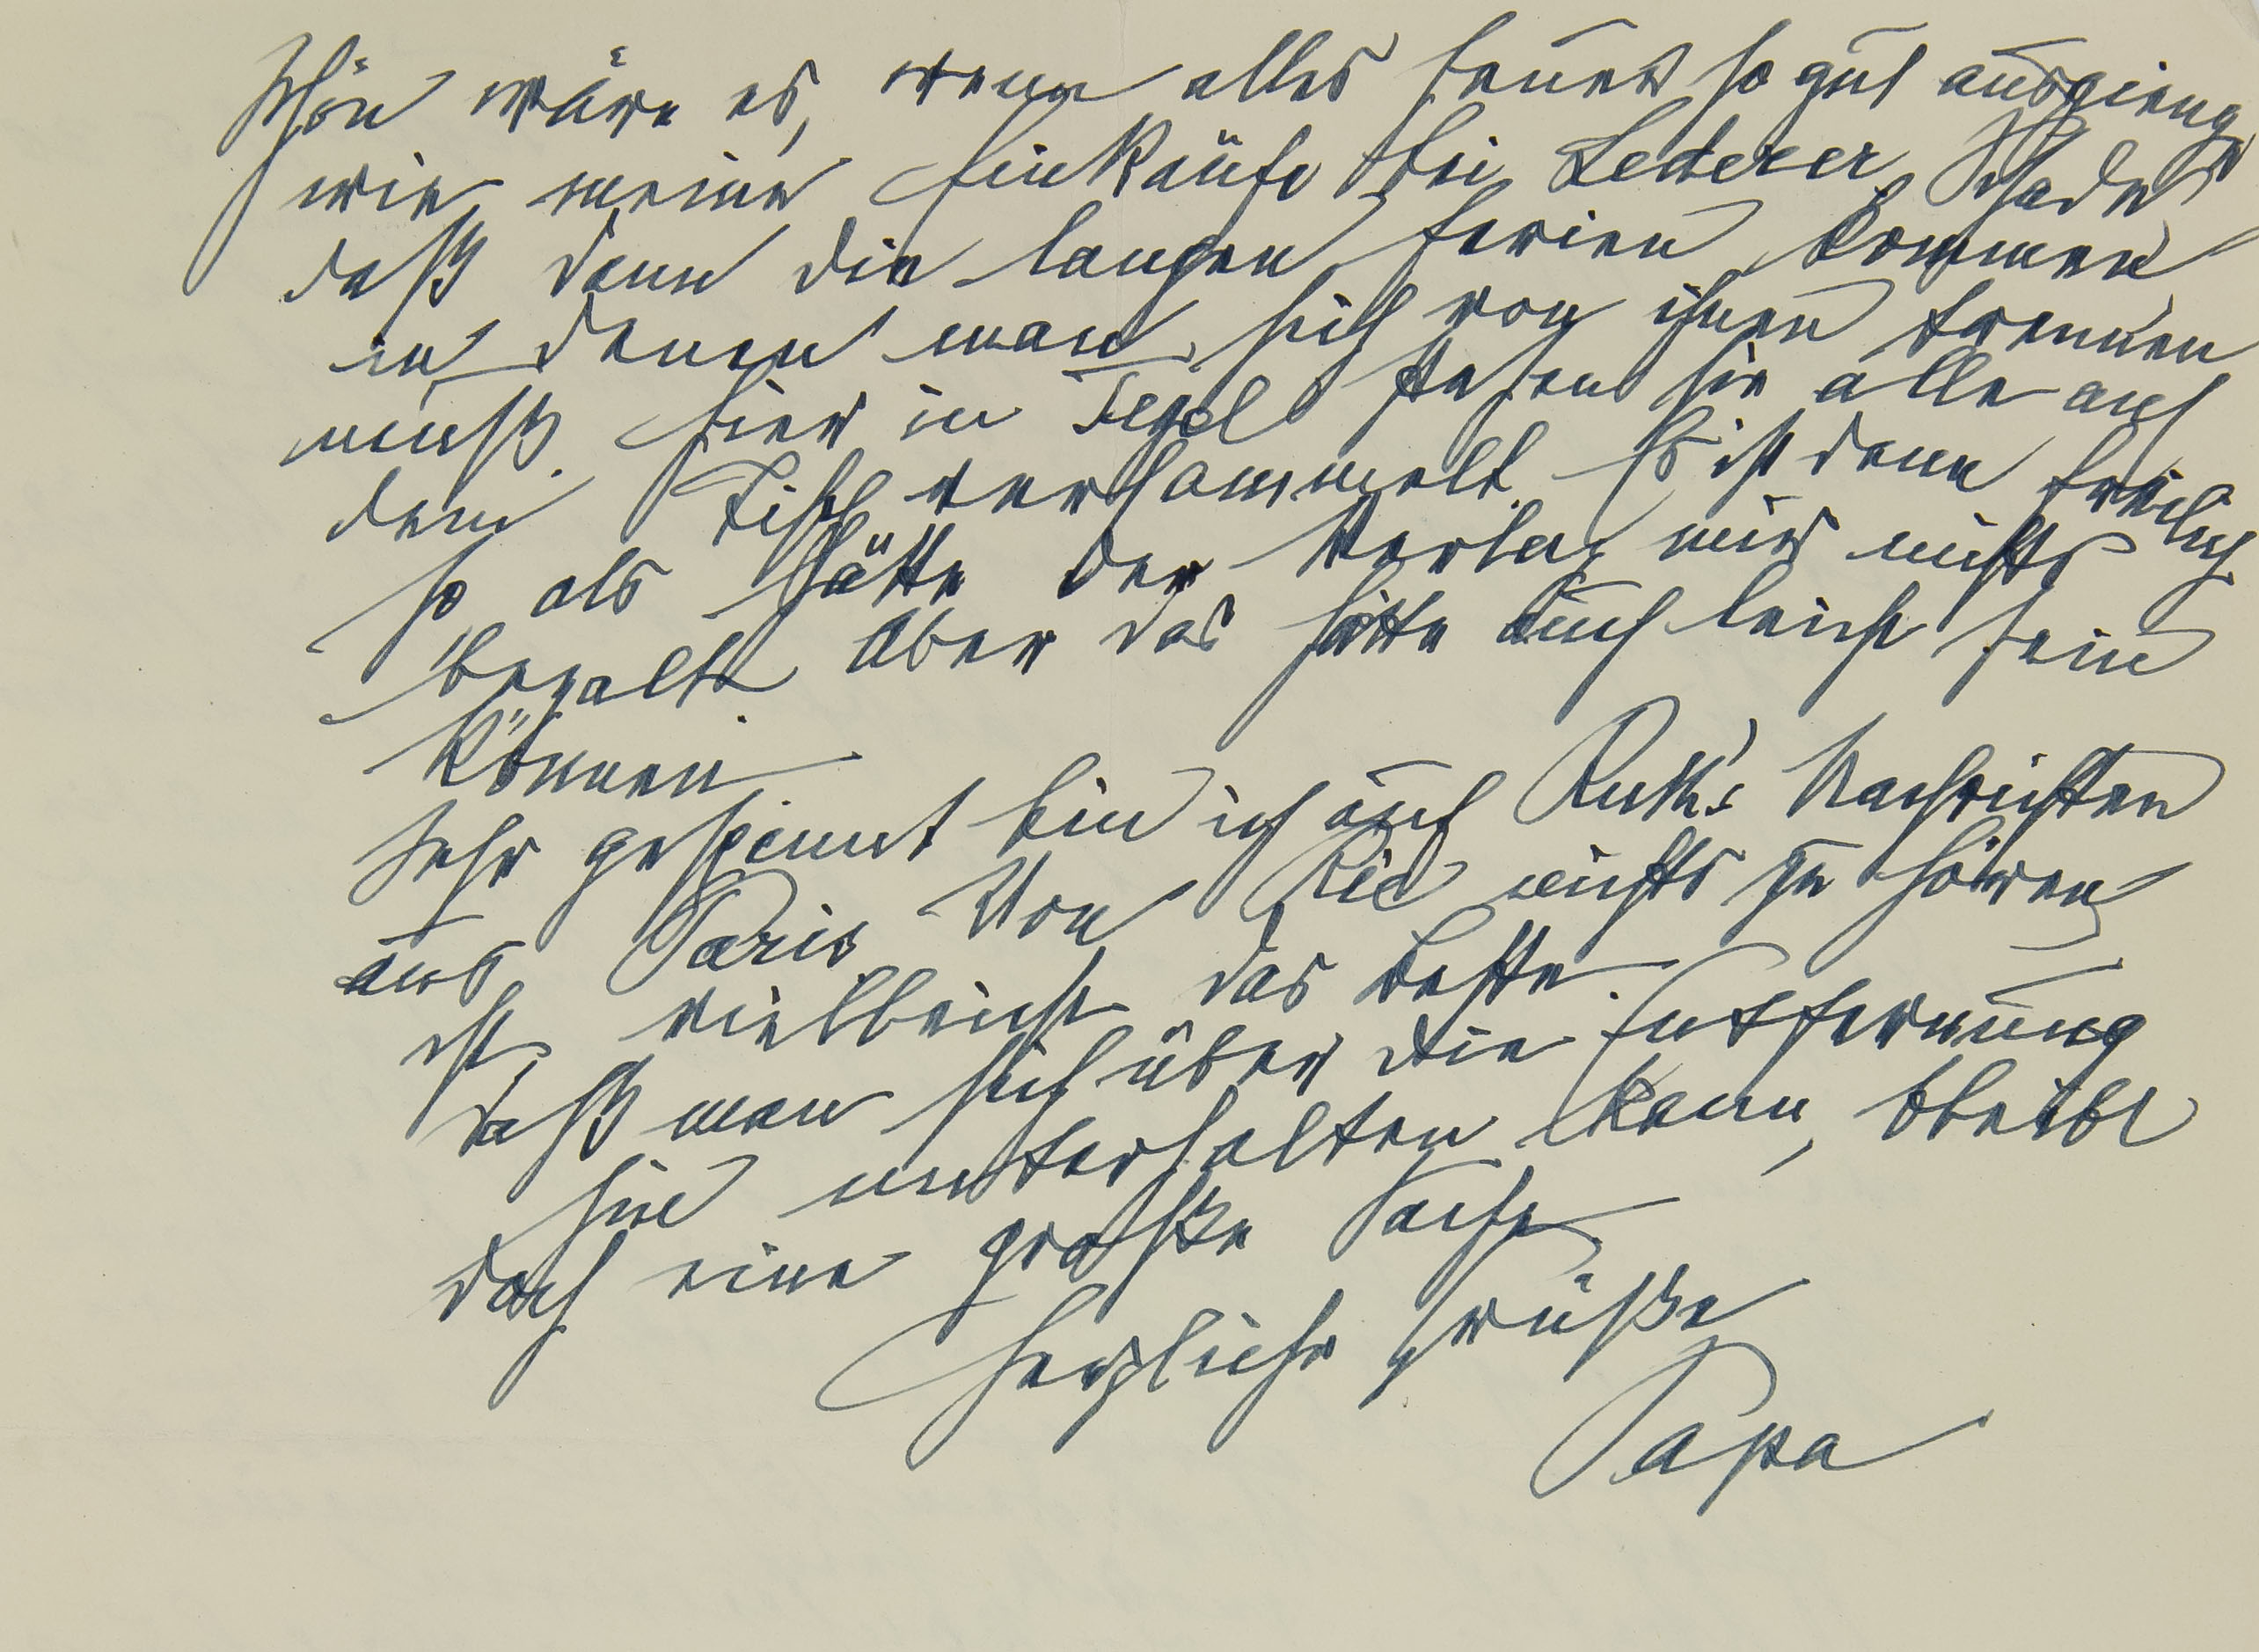 Schön wäre es, wenn alles heuer so gut ausgienge
wie meine Einkäufe bei Lederer. Schade
daß dann die langen Ferien kommen,
in denen man sich von ihnen trennen
muß. Hier in Tegel stehen sie alle auf
dem Tisch versammelt. Es ist dann freilich
so als hätte der Verlag mir nichts
bezalt. Aber das hätte auch leicht sein
können.
Sehr gespannt bin ich auf Ruth's Nachrichten
aus Paris. Von nichts zu hören
ist vielleicht das beste.
Daß man sich über die Entfernung
hin unterhalten kann, bleibt
doch eine große Sache.
Herzliche Grüße
Papa